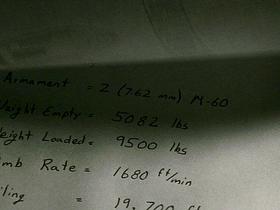 Armament = 2 (7.62 mm) M-60
Weight Empty = 5082 lbs
Weight Loaded = 9500 lbs
mb Rate = 1680 ft/min
iling = 19,700 ft